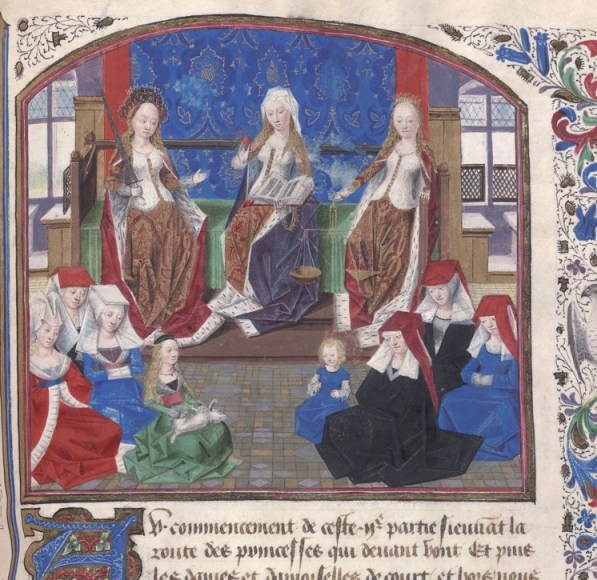 Av commencement de ceste ijᵉ partie sieuuāt la
route des princesses qui deuant vont Et puis
les dames et damoiselles de court et